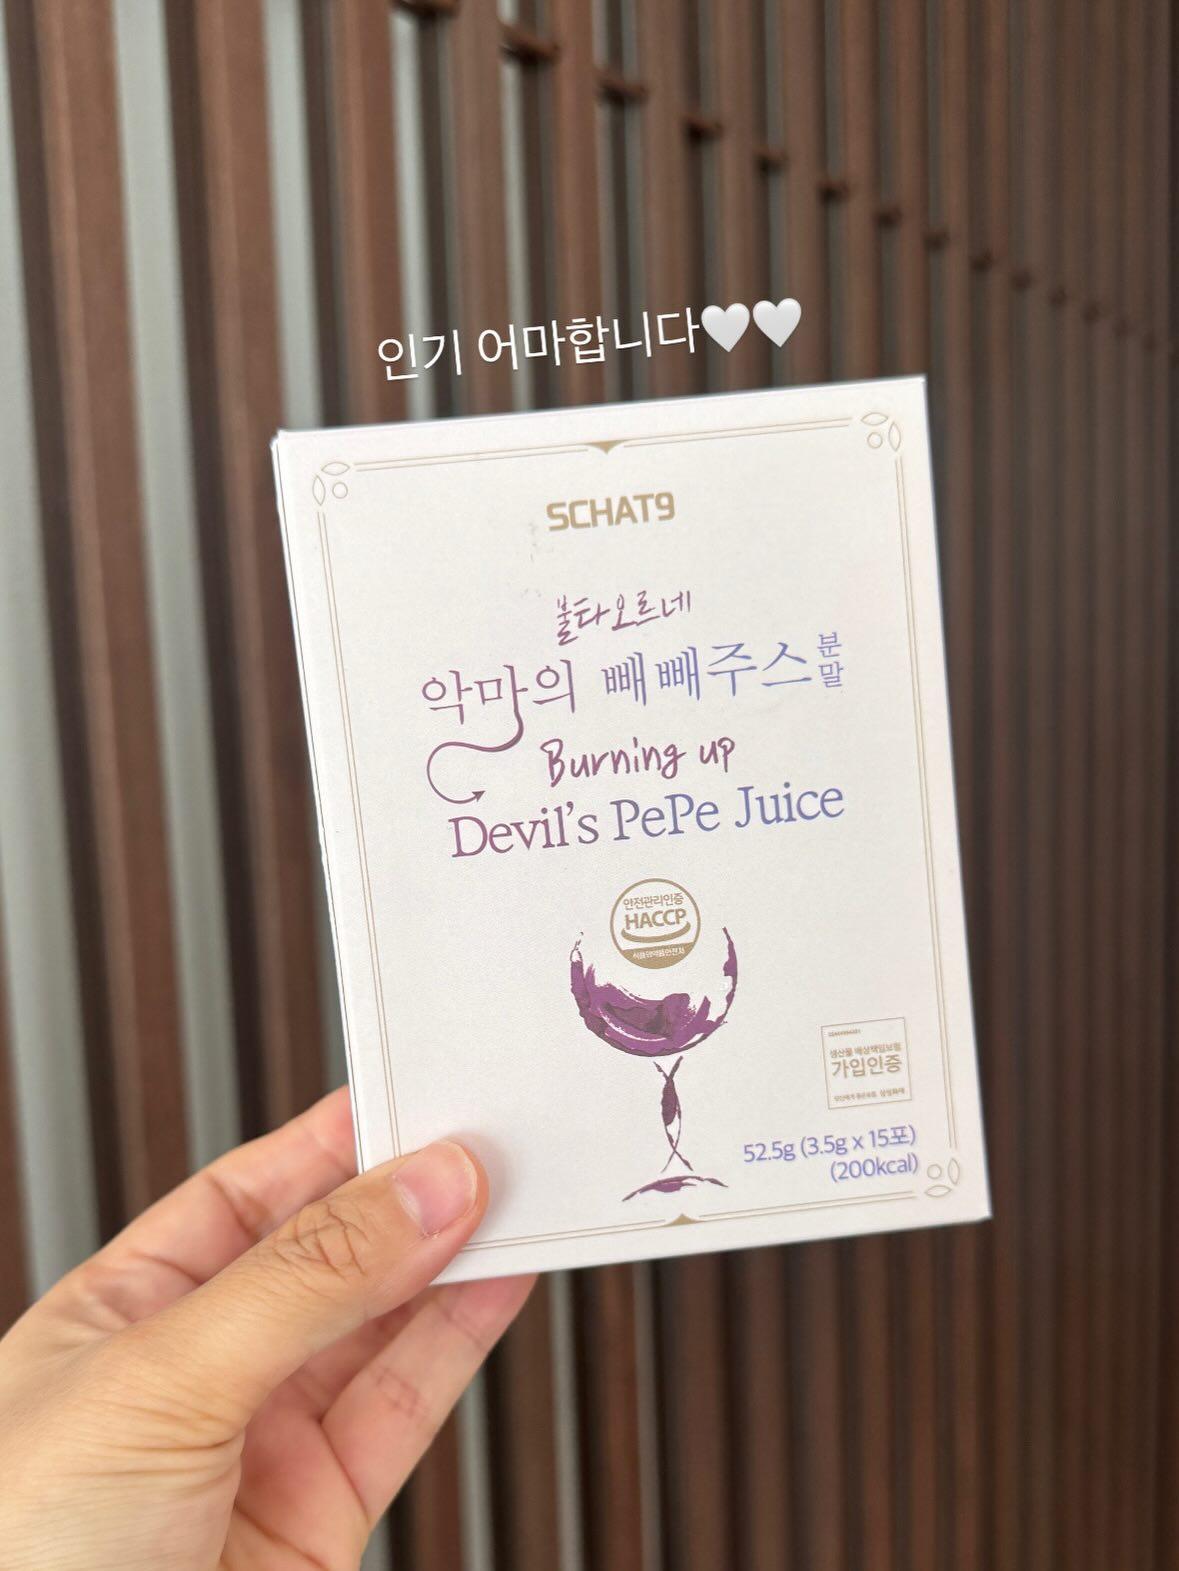 인기 어마합니다🤍🤍
SCHAT9
불타오르네
악마의 빼빼주스 분말
Burning up
Devil's PePe Juice
안전관리인증
HACCP
식품의약품안전처
생산물 배상책임보험
가입인증
삼성화재
52.5g (3.5g x 15포)
(200kcal)